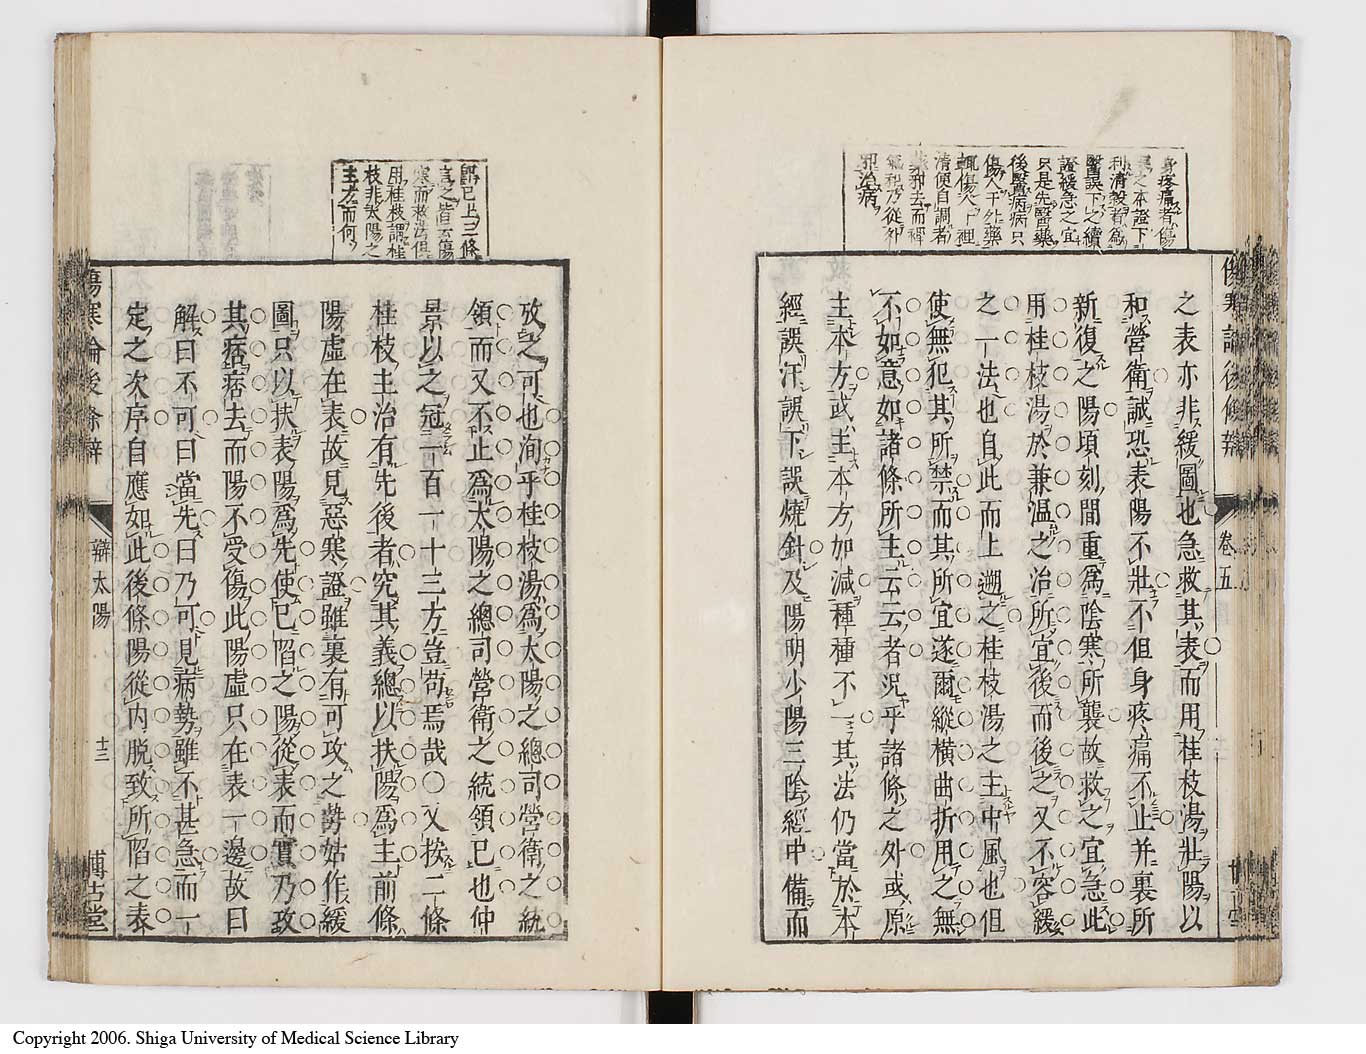 傷寒論後條辨
卷五
身疼痛者傷
寒之本證下
利清穀者為
醫誤下之續
證緩急之宜
只是先醫藥
後醫病病只
傷人于外藥
輒傷人于裡
清便自調者
藥邪去而裡
氣和乃從外
邪治病
之表亦非緩圖也急救其表而用桂枝湯壯陽以
和營衛誠恐表陽不壯不但身疼痛不止并裏所
新復之陽頃刻間重爲陰寒所襲故救之宜急此
用桂枝湯於兼溫之治所宜後而後之又不容緩
之一法也自此而上遡之桂枝湯之主中風也但
使無犯其所禁而其所宜遂爾縱橫曲折用之無
不如意如諸條所主云云者況乎諸條之外或原
主本方或主本方加減種種不一其法仍當於本
經誤汗誤下誤燒針及陽明少陽三陰經中備而
卽已上三條
言之皆云傷
寒而救法俱
用桂枝謂桂
枝非太陽之
主方而何
攷之可也洵乎桂枝湯爲太陽之總司營衛之統
領而又不止爲太陽之總司營衛之統領已也仲
景以之冠一百一十三方豈苟焉哉〇又按二條
桂枝主治有先後者究其義總以扶陽爲主前條
陽虛在表故見惡寒證雖裏有可攻之勢姑作緩
圖只以扶表陽爲先使已陷之陽從表而實乃攻
其痞痞去而陽不受傷此陽虛只在表一邊故曰
解曰不可曰當先曰乃可見病勢雖不甚急而一
定之次序自應如此後條陽從内脱致所陷之表
傷寒論後條辨
辯太陽
十三
博古堂
Copyright 2006. Shiga University of Medical Science Library